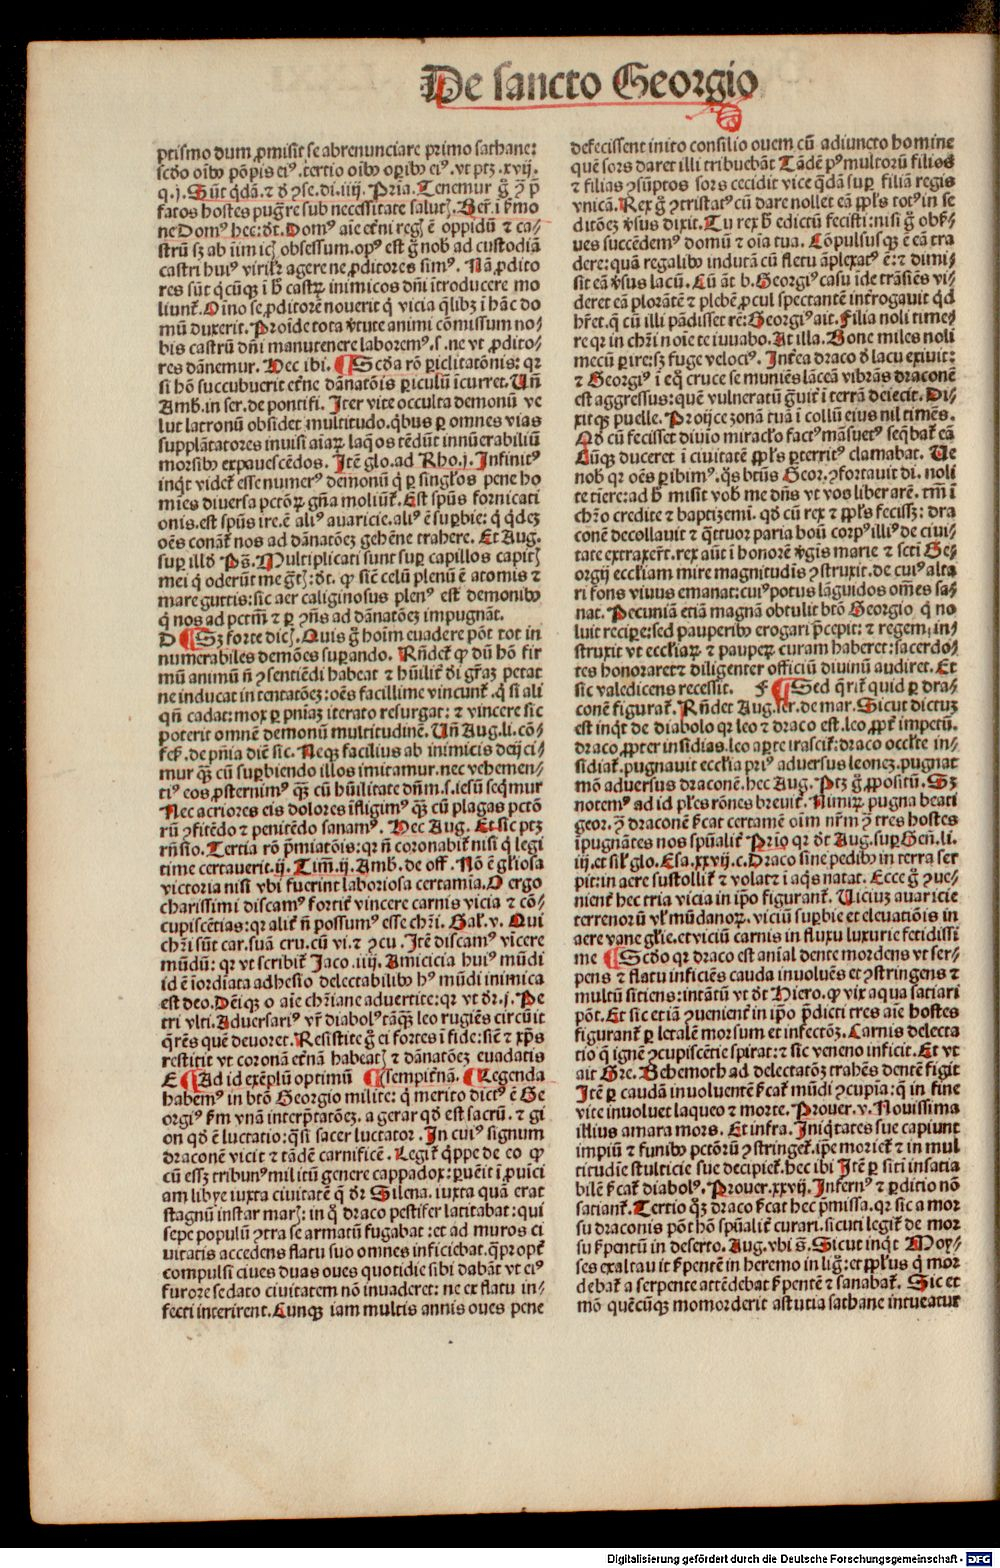 De sancto Georgio
ptismo dum ꝓmisit̄ se abrenunciare primo sathane:
scd̓o oĩbꝰ põpis eiꝰ. tertio oĩbꝰ oꝑibꝰ eiꝰ. vt ptꝫ. xvij.
q. j. Sũt q̇dã. ⁊ d̓ ꝯse. di. iiij. Pria. Tenemur
fatos hostes pug̃re sub necessitate saluṫ. Ber̃. i ẜmo
ne Domꝰ hec: d̓t. Domꝰ aĩe et̓ni reg̃ ẽ oppidũ ⁊ ca⸗
strũ sꝫ ab iĩmic̃ obsessum. opꝰ est g̃ nob̓ ad custodiã
castri huiꝰ viril̓r agere ne ꝓditores simꝰ. Nã ꝓdito
res sũt q̇cũqꝫ i h̓ castꝝ inimicos dñi ĩtroducere mo
liunt̓. Oĩno se ꝓditorẽ nouerit q̇ vicia q̃libꝫ i hãc do
mũ duxerit. Proĩde tota v̓tute animi cõmissum no⸗
bis castrũ dñi manutenere laboremꝰ. s. ne vt ꝓdito⸗
res dãnemur. Hec ibi. ¶ Scd̓a rõ ꝑiclitatõnis: qꝛ
si hõ succubuerit et̓ne dãnatõis ꝑiculũ ĩcurret. Uñ
Amb̓. in ser. de pontifi. Iter vite occulta demonũ ve
lut latronũ obsidet multitudo. q̇bus ꝑ omnes vias
supplãtatores inuisi aĩaꝝ laq̓os tẽdũt innũerabiliũ
morsibꝰ expauescẽdos. Itẽ glo. ad Rho. j. Infinitꝰ
inq̇t videt̓ esse numerꝰ demonũ q̇ ꝑ sing̓los pene ho
mĩes diuersa pctõꝝ gña moliũt̓. Est spũs fornicati
onis. est spũs ire. ẽ aliꝰ auaricie. aliꝰ ẽ suꝑbie: q̇ q̇dẽ
oẽs conãt̓ nos ad dãnatõeꝫ gehẽne trahere. Et Aug.
suꝑ ill̓d Ps̃. Multiplicati sunt suꝑ capillos capiṫ
mei q̇ oderũt me: d̓t. ꝙ sic̃ celũ plenũ ẽ atomis ⁊
mare guttis: sic aer caliginosus plenꝰ est demonibꝰ
q̇ nos ad pctm̃ ⁊ ꝑ ꝯñs ad dãnatõeꝫ impugnãt.
D ¶ Sꝫ forte dic̃. Quis g̃ hoĩm euadere põt tot in
numerabiles demões suꝑando. Rñdet̓ ꝙ dũ hõ fir
mũ animũ ñ ꝯsentiẽdi habeat ⁊ hũilit̓ di gr̃aꝫ petat
ne inducat in tentatõeꝫ: oẽs facillime vincunt̓. q̇ si ali
qñ cadat: mox ꝑ pñiaꝫ iterato resurgat: ⁊ vincere sic
poterit omnẽ demonũ multitudinẽ. Uñ Aug. li. cõ⸗
fes̓. de pñia diẽ sic. Neqꝫ facilius ab inimicis deijci⸗
mur qꝫ cũ suꝑbiendo illos imitamur. nec vehemen⸗
tiꝰ eos ꝓsternimꝰ qꝫ cũ hũilitate dñm. s. iesũ seq̃mur
Nec acriores eis dolores ĩfligimꝰ qꝫ cũ plagas pctõ
rũ ꝯfitẽdo ⁊ penitẽdo sanamꝰ. Hec Aug. Et sic ptꝫ
rñsio. Tertia rõ p̃miatõis: qꝛ ñ coronabit̓ nisi q̇ legi
time certauerit. ij. Tim̃. ij. Amb. de off. Nõ ẽ gl̓iosa
victoria nisi vbi fuerint laboriosa certamĩa. O ergo
charissimi discamꝰ fortit̓ vincere carnis vicia ⁊ cõ⸗
cupiscẽtias: qꝛ alit̓ ñ possumꝰ esse chr̃i. Gal̓. v. Qui
chr̃i sũt car. suã cru. cũ vi. ⁊ ꝯcu. Itẽ discamꝰ vĩcere
mũdũ: qꝛ vt scribit̓ Iaco. iiij. Amicicia huiꝰ mũdi
id ẽ ĩordiata adhesio delectabilibꝰ hꝰ mũdi inimica
est deo. Deĩqꝫ o aĩe chr̃iane aduertite: qꝛ vt d̓r. j. Pe
tri vlti. Aduersariꝰ vr̃ diabolꝰ tãqꝫ leo rugiẽs circũit
q̃rẽs quẽ deuoret. Resistite g̃ ei fortes ĩ fide: sic̃ ⁊ xp̃s
restitit vt coronã et̓nã habeaṫ ⁊ dãnatõeꝫ euadatis
E ¶ Ad id exẽplũ optimũ ¶ sempit̓nã. ¶ Legenda
habemꝰ in btõ Georgio milite: q̇ merito dictꝰ ẽ Ge
orgiꝰ ẜm vnã interp̃tatõeꝫ. a gerar qd̓ est sacrũ. ⁊ gi
on qd̓ ẽ luctatio: q̃si sacer luctator. In cuiꝰ signum
draconẽ vicit ⁊ tãdẽ carnificẽ. Legit̓ q̇ppe de eo ꝙ
cũ essꝫ tribunꝰ militũ genere cappadox: ꝑuẽit ĩ ꝓuĩci
am libye iuxta ciuitatẽ q̃ d̓r Silena. iuxta quã erat
stagnũ instar mar̃: in q̇ draco pestifer latitabat: qui
sepe populũ ꝯtra se armatũ fugabat: et ad muros ci
uitatis accedens flatu suo omnes inficiebat. q̃propt̓
compulsi ciues duas oues quotidie sibi dabãt vt eiꝰ
furore sedato ciuitatem nõ inuaderet: ne ex flatu in⸗
fecti interirent. Cunqꝫ iam multis annis oues pene
defecissent inito consilio ouem cũ adiuncto homine
quẽ sors daret illi tribuebãt Tãdẽ pꝰ multorũ filios
⁊ filias ꝯsũptos sors cecidit vice q̃dã suꝑ filiã regis
vnicã. Rex g̃ ꝯtristatꝰ cũ dare nollet eã ppl̓s totꝰ in se
ditõeꝫ v̓sus dixit. Tu rex h̓ edictũ fecisti: nisi g̃ obẜ⸗
ues succẽdemꝰ domũ ⁊ oĩa tua. Cõpulsusqꝫ ẽ eã tra
dere: quã regalibꝰ indutã cũ fletu ãplexatꝰ ẽ: ⁊ dimi⸗
sit eã v̓sus lacũ. Cũ ãt b. Georgiꝰ casu ĩde trãsiẽs vi⸗
deret eã plorãtẽ ⁊ plebẽ ꝓcul spectantẽ int̓rogauit qd̓
hr̃et. q̃ cũ illi pãdisset rẽ: Georgiꝰ ait. Filia noli time⸗
re qꝛ in chr̃i noĩe te iuuabo. At illa. Bone miles noli
mecũ ꝑire: sꝫ fuge velociꝰ. Int̓ea draco d̓ lacu exiuit:
⁊ Georgiꝰ ĩ eq̇ cruce se muniẽs lãceã vibrãs draconẽ
est aggressus: quẽ vulneratũ g̃uit̓ ĩ terrã deiecit. Di⸗
xitqꝫ puelle. Proijce zonã tuã ĩ collũ eius nil timẽs.
Qd̓ cũ fecisset diuio miracl̓o factꝰ mãsuetꝰ seq̃bat̓ eã
Cũqꝫ duceret ĩ ciuitatẽ ppl̓s ꝑterritꝰ clamabat. Ue
nob̓ qꝛ oẽs ꝑibimꝰ. q̇s btũs Geor. ꝯfortauit di. noli
te tiere: ad h̓ misit vob̓ me dñs vt vos liberarẽ. tm̃ ĩ
chr̃o credite ⁊ baptizemĩ. qd̓ cũ rex ⁊ ppl̓s fecissꝫ: dra
conẽ decollauit ⁊ q̃ttuor paria boũ corpꝰ illiꝰ de ciui⸗
tate extraxer̃t. rex aũt ĩ honorẽ v̓gĩs marie ⁊ scti Ge⸗
orgij eccl̓iam mire magnitudĩs ꝯstruxit. de cuiꝰ alta
ri fons viuus emanat: cuiꝰ potus lãguidos om̃es sa⸗
nat. Pecuniã etiã magnã obtulit btõ Georgio q̇ no
luit recipe: sed pauperibꝰ erogari p̃cepit: ⁊ regem in⸗
struxit vt eccl̓iaꝝ ⁊ paupeꝝ curam haberet: sacerdo⸗
tes honoraret ⁊ diligenter officiũ diuinũ audiret. Et
sic valedicens recessit. F ¶ Sed q̃rit̓ quid ꝑ dra⸗
conẽ figurat̓. Rñdet Aug. ser. de mar. Sicut dictuꝫ
est inq̇t de diabolo qꝛ leo ⁊ draco est. leo ꝓpt̓ impetũ.
draco ꝓpter insidias. leo aꝑte irascit̓: draco occl̓te in⸗
sidiat̓. pugnauit eccl̓ia priꝰ aduersus leoneꝫ. pugnat
mõ aduersus draconẽ. hec Aug. Ptꝫ g̃ ꝓpositũ. Sꝫ
notemꝰ ad id pl̓es rõnes breuit̓. Nimiꝝ pugna beati
geor. ꝯ̃ draconẽ ẜcat certamẽ oĩm nr̃m ꝯ̃ tres hostes
ĩpugnãtes nos spũalit̓ Prio qꝛ d̓t Aug. suꝑ Geñ. li.
iij. et sil̓ glo. Esa. xxvij. c. Draco sine pedibꝰ in terra ser
pit: in aere sustollit̓ ⁊ volat ⁊ ĩ aq̇s natat. Ecce g̃ ꝯue⸗
nient̓ hec tria vicia in ip̃o figurant̓. Uiciuꝫ auaricie
terrenorũ vl̓ mũdanoꝝ. viciũ suꝑbie et eleuatiõis in
aere vane gl̓ie. et viciũ carnis in fluxu luxurie fetidissi
me ¶ Scd̓o qꝛ draco est anĩal dente mordens vt ser⸗
pens ⁊ flatu inficiẽs cauda inuoluẽs et ꝯstringens ⁊
multũ sitiens: intãtũ vt d̓t Hiero. ꝙ vix aqua satiari
põt. Et sic etiã ꝯuenient̓ in ip̃o p̃dicti tres aĩe hostes
figurant̓ ꝑ letalẽ morsum et infectõeꝫ. Carnis delecta
tio q̃ ignẽ ꝯcupiscẽtie spirat: ⁊ sic veneno inficit. Et vt
ait Gre. Behemoth ad delectatõeꝫ trahẽs dentẽ figit
Itẽ ꝑ caudã inuoluentẽ ẜcat̓ mũdi ꝯcupĩa: q̃ in fine
vite inuoluet laqueo ⁊ morte. Prouer. v. Nouissima
illius amara mors. Et infra. Iniq̇tates sue capiunt
impiũ ⁊ funibꝰ pctõrũ ꝯstringet̓. ip̃e moriet̓ ⁊ in mul
titudĩe stulticie sue decipiet̓. hec ibi Itẽ ꝑ siti insatia
bilẽ ẜcat̓ diabolꝰ. Prouer. xxvij. Infernꝰ ⁊ ꝑditio nõ
satiant̓. Tertio q̇ꝫ draco ẜcat hec p̃missa. qꝛ sic a mor
su draconis põt hõ spũalit̓ curari. sicuti legit̓ de mor
su ẜpentũ in deserto. Aug. vbi s̃. Sicut inq̇t Moy⸗
ses exaltauit ẜpentẽ in heremo in lig̃: et ppl̓us q̇ mor
debat̓ a serpente attẽdebat ẜpentẽ ⁊ sanabat̓. Sic et
mõ quẽcũqꝫ momorderit astutia sathane intueatur
Digitalisierung gefördert durch die Deutsche Forschungsgemeinschaft - DFG